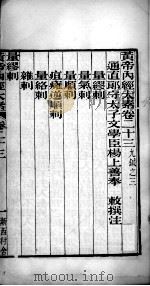 黃帝內經太素卷二十三九鍼之三
通直郎守太子文學臣楊上善奉 敕撰注
量繆刺
量氣刺
量順刺
疽癰逆順刺
量絡刺
雜刺
量繆刺
黃帝內經太素 卷二十三